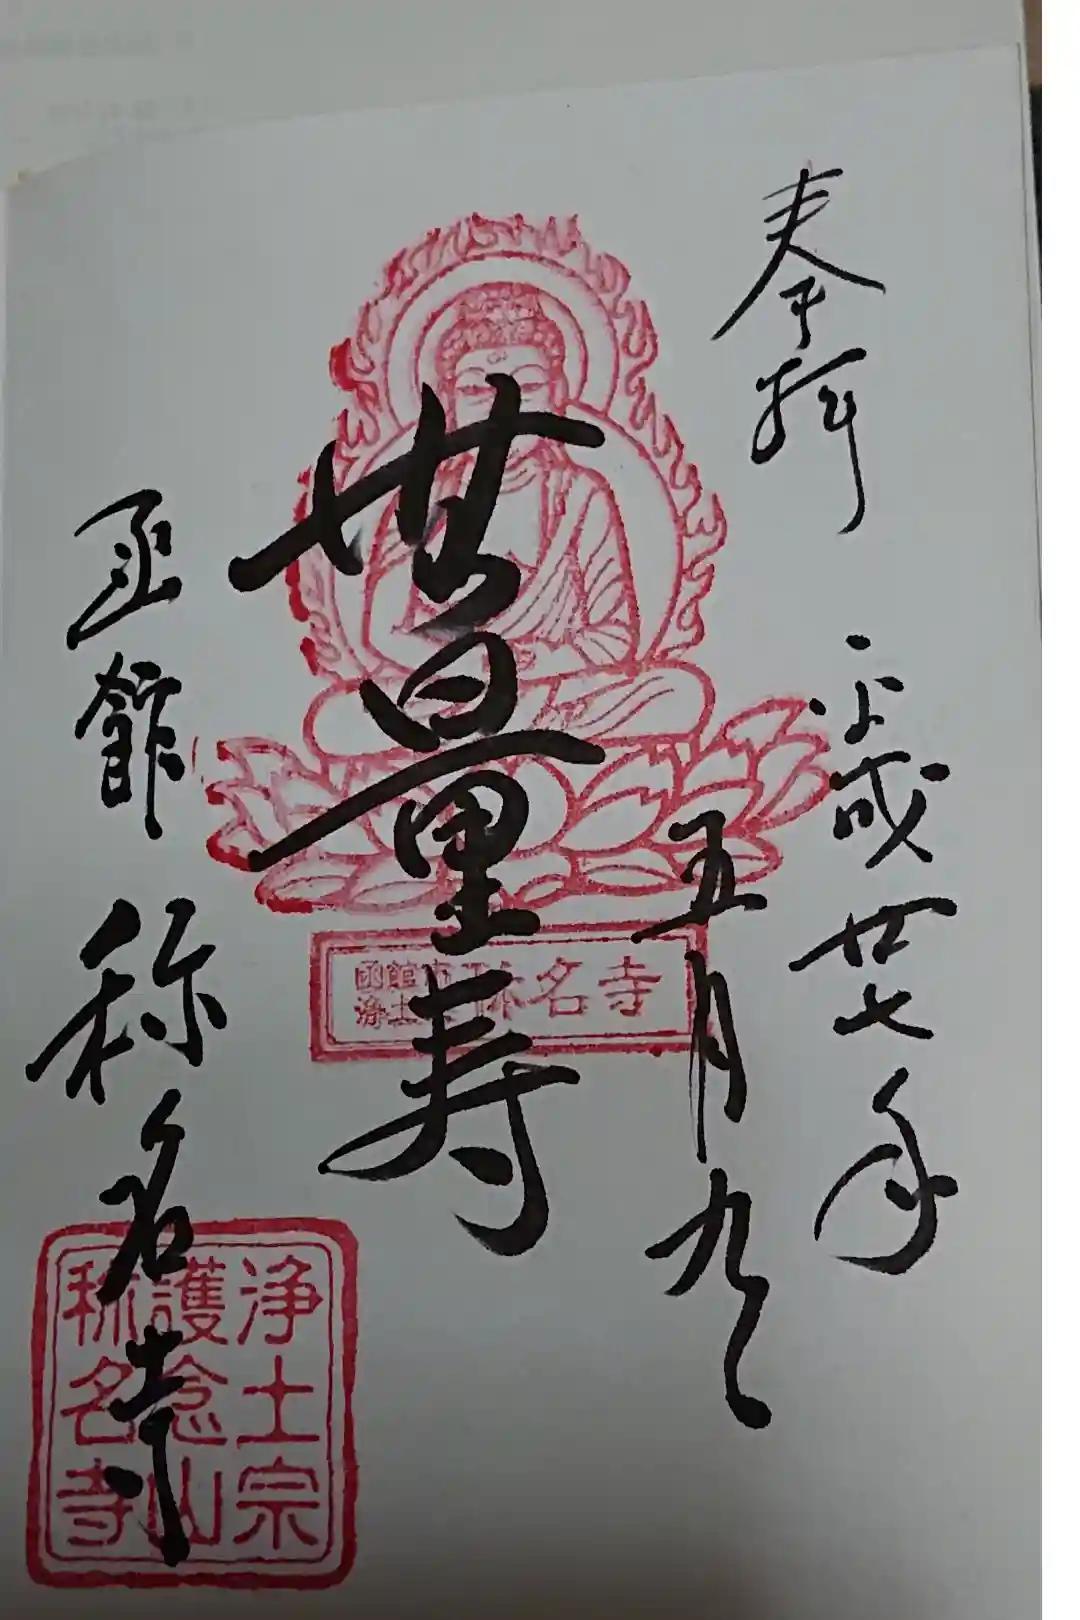 奉拝
平成廿七年
五月九日
無量寿
函館市
浄土宗
称名寺
函館 称名寺
浄土宗
護念山
称名寺